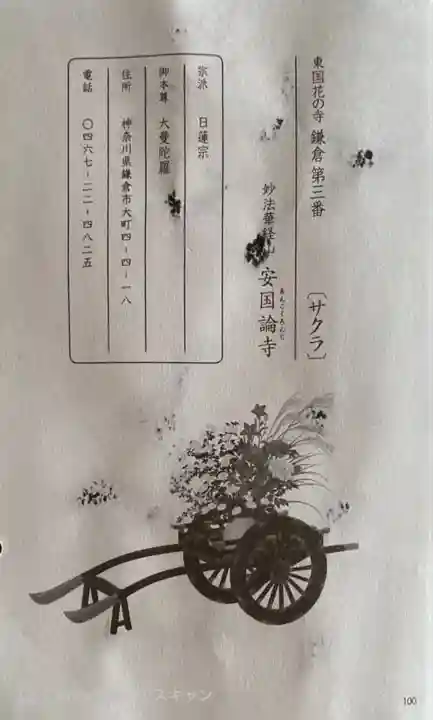 東国花の寺 鎌倉 第三番
〔サクラ〕
妙法華経山 安国論寺
あんこくろんじ
宗派 日蓮宗
御本尊 大曼陀羅
住所 神奈川県鎌倉市大町四-四-一八
電話 〇四六七-二二-四八二五
スキャン
100